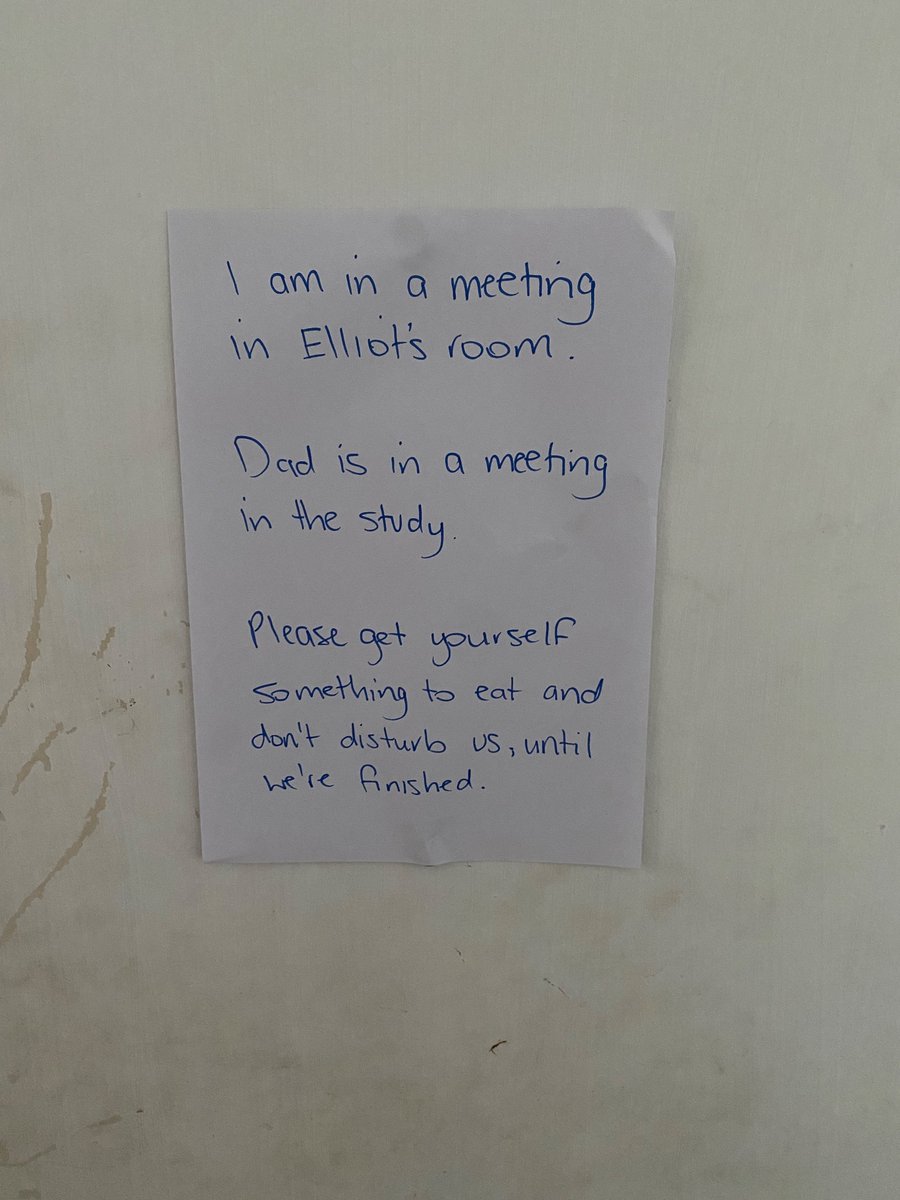 I am in a meeting
in Elliot's room.
Dad is in a meeting
in the study.
Please get yourself
something to eat and
don't disturb us, until
we're finished.